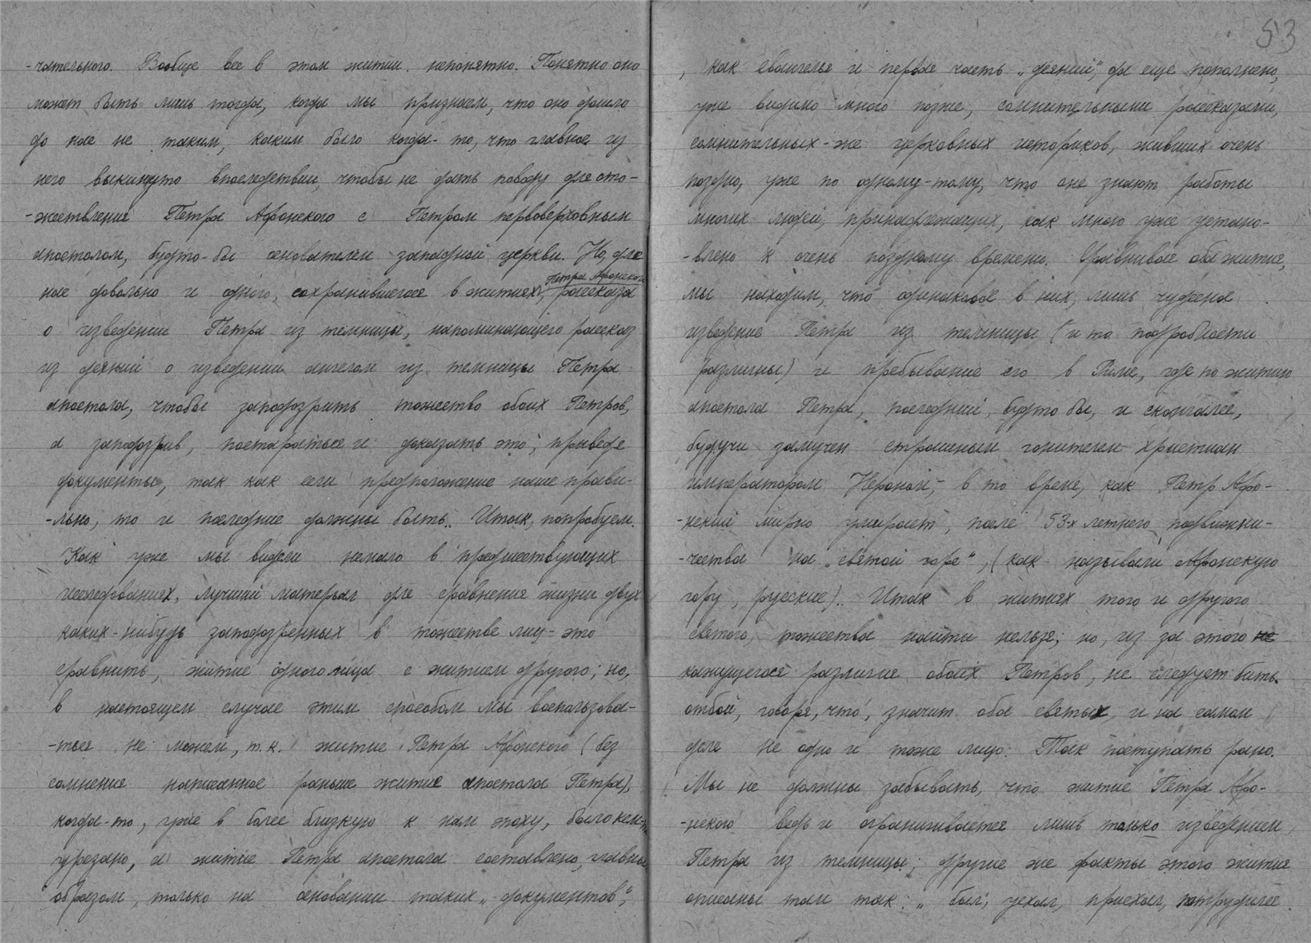 -чательного. Вообще все в этом житии непонятно. Понятно оно
может быть лишь тогда, когда мы признаем, что оно дошло
до нас не таким, каким было когда-то, что главное из
него выкинуто впоследствии, чтобы не дать поводу для ото-
-жествления Петра Афонского с Петром первоверховным
апостолом, будто-бы основателем западной церкви. Но для
нас довольно и одного, сохранившегося в житиях Петра Афонского, рассказа
о изведении Петра из темницы, напоминающего рассказ
из деяний о изведении ангелом из темницы Петра
апостола, чтобы заподозрить тожество обоих Петров,
а заподозрив, постараться и доказать это, приведя
документы, так как если предположение наше прави-
-льно, то и последние должны быть. Итак, попробуем.
Как уже мы видели немало в предшествующих
исследованиях, лучший матерьял для сравнения жизни двух
каких-нибудь заподозренных в тожестве лиц-это
сравнить, житие одного лица с житием другого; но,
в настоящем случае этим способом мы воспользова-
-ться не можем, т.к. житие Петра Афонского (без
сомнения написанное раньше жития апостола Петра),
когда-то, уже в более близкую к нам эпоху, было кем-то
урезано, а житие Петра апостола составлено, главным
образом, только на основании таких „документов",
53
, как евангелья и первая часть „деяний", да еще пополнено,
уже видимо много позже, сомнительными рассказами,
сомнительных-же церковных историков, живших очень
поздно, уже по одному-тому, что они знают работы
многих людей, принадлежащих, как много уже устано-
-влено к очень позднему времени. Сравнивая оба жития,
мы находим, что одинаковое в них, лишь чудесное
изведение Петра из темницы (и то подробности
различны) и пребывание его в Риме, где по житию
апостола Петра, последний, будто бы, и скончался,
будучи замучен страшным гонителем христиан
императором Нероном, в то время, как Петр Афо-
-нский мирно умирает, после 53-х летнего подвижни-
-чества на „святой горе", (как называли Афонскую
гору, русские). Итак в житиях того и другого
святого, тожества найти нельзя; но, из за этого не
кажущегося различия обоих Петров, не следует бить
отбой, говоря, что, значит оба святых и на самом
деле не одно и тоже лицо. Так поступать рано.
Мы не должны забывать, что житие Петра Афо-
-нского ведь и ограничивается лишь только изведением
Петра из темницы; другие же факты этого жития
описаны там так: „был, уехал, приехал, потрудился